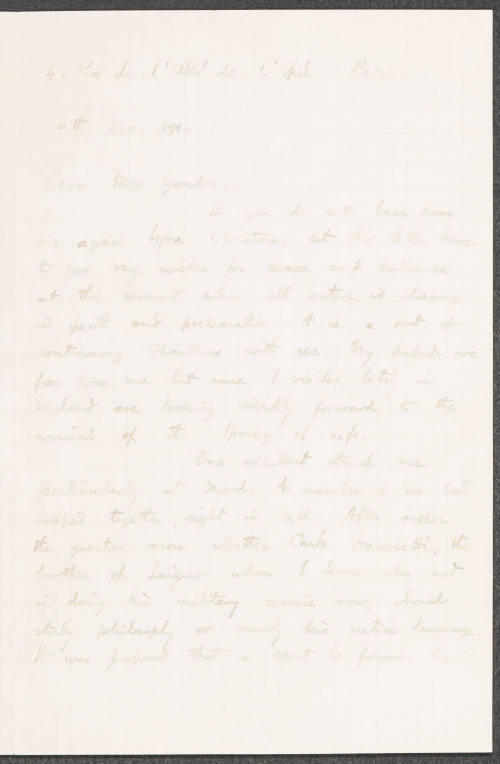 4. Rue de l'Abbé de l'Epée Paris
Dec. 1910
Dear Mrs Gardner,
If you do not hear from
me again before Christmas let this letter bear
to you my wishes for peace and
at the moment when all nature is
in faith and preparation. It is a sort of
continuing Christmas with us. My friends are
far from me but some I visited lately in
England are looking vividly forward to the
arrival of the Spring of life.
One incident struck me
particularly at Oxford. A number of us had
supped together, eight in all. After supper
the question arose whether Carlo Franchetti, the
brother of Luigino whom I know also and
is doing his military service now, should
study philosophy or merely his native language.
It was proposed that a court be formed, he